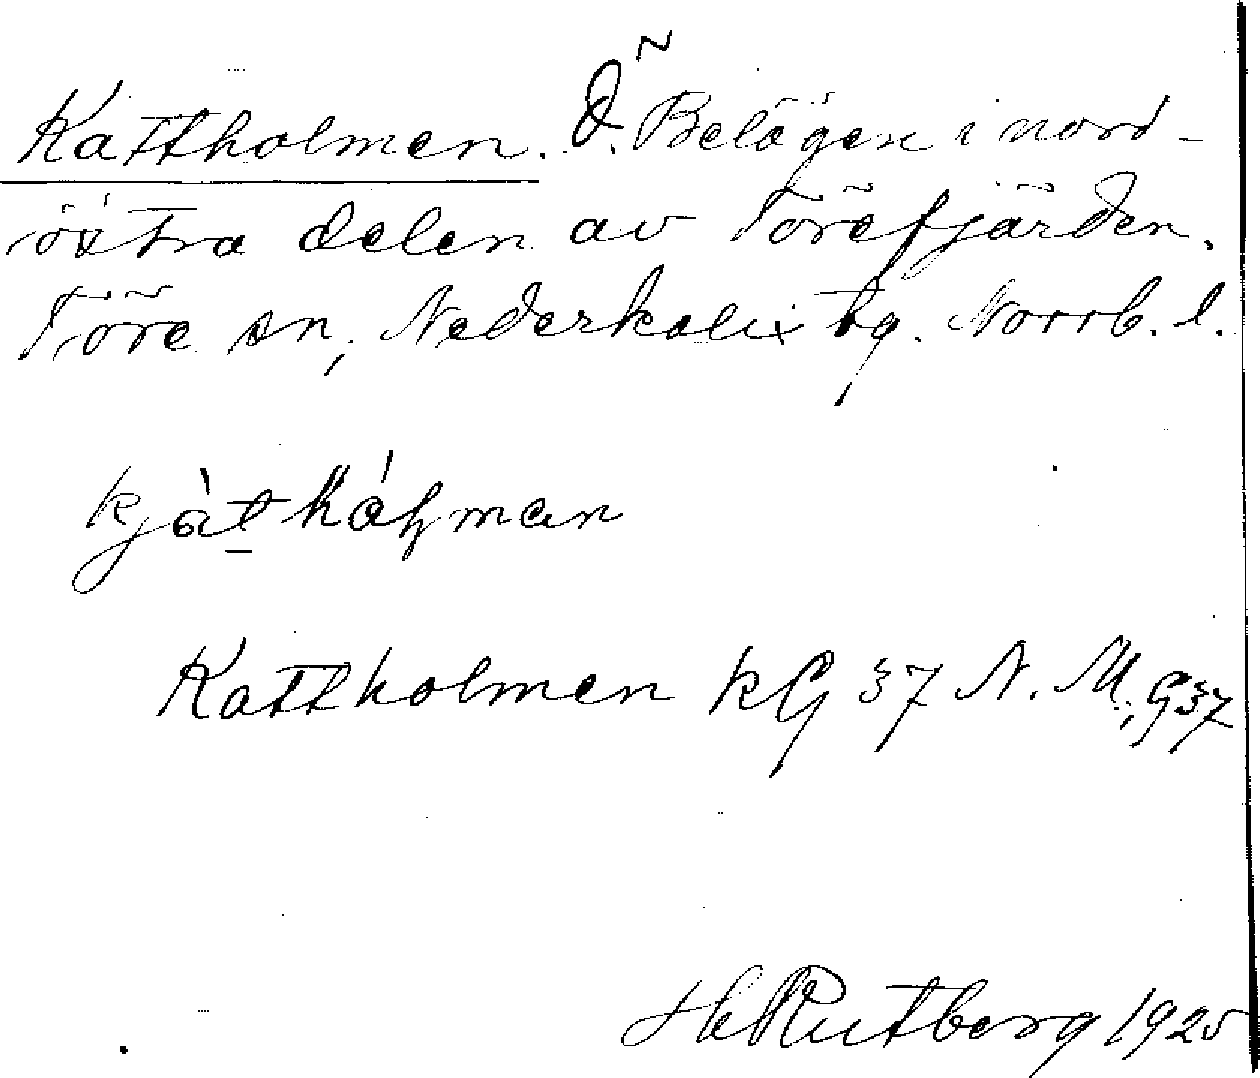 Kattholmen. Ö. Belägen i nord-
östra delen av Törefjärden.
Töre sn, Nederkalix tg. Norrb. l.
kjàt háļman
Kattholmen kG 37 N. M., G37
H Rutberg 1925